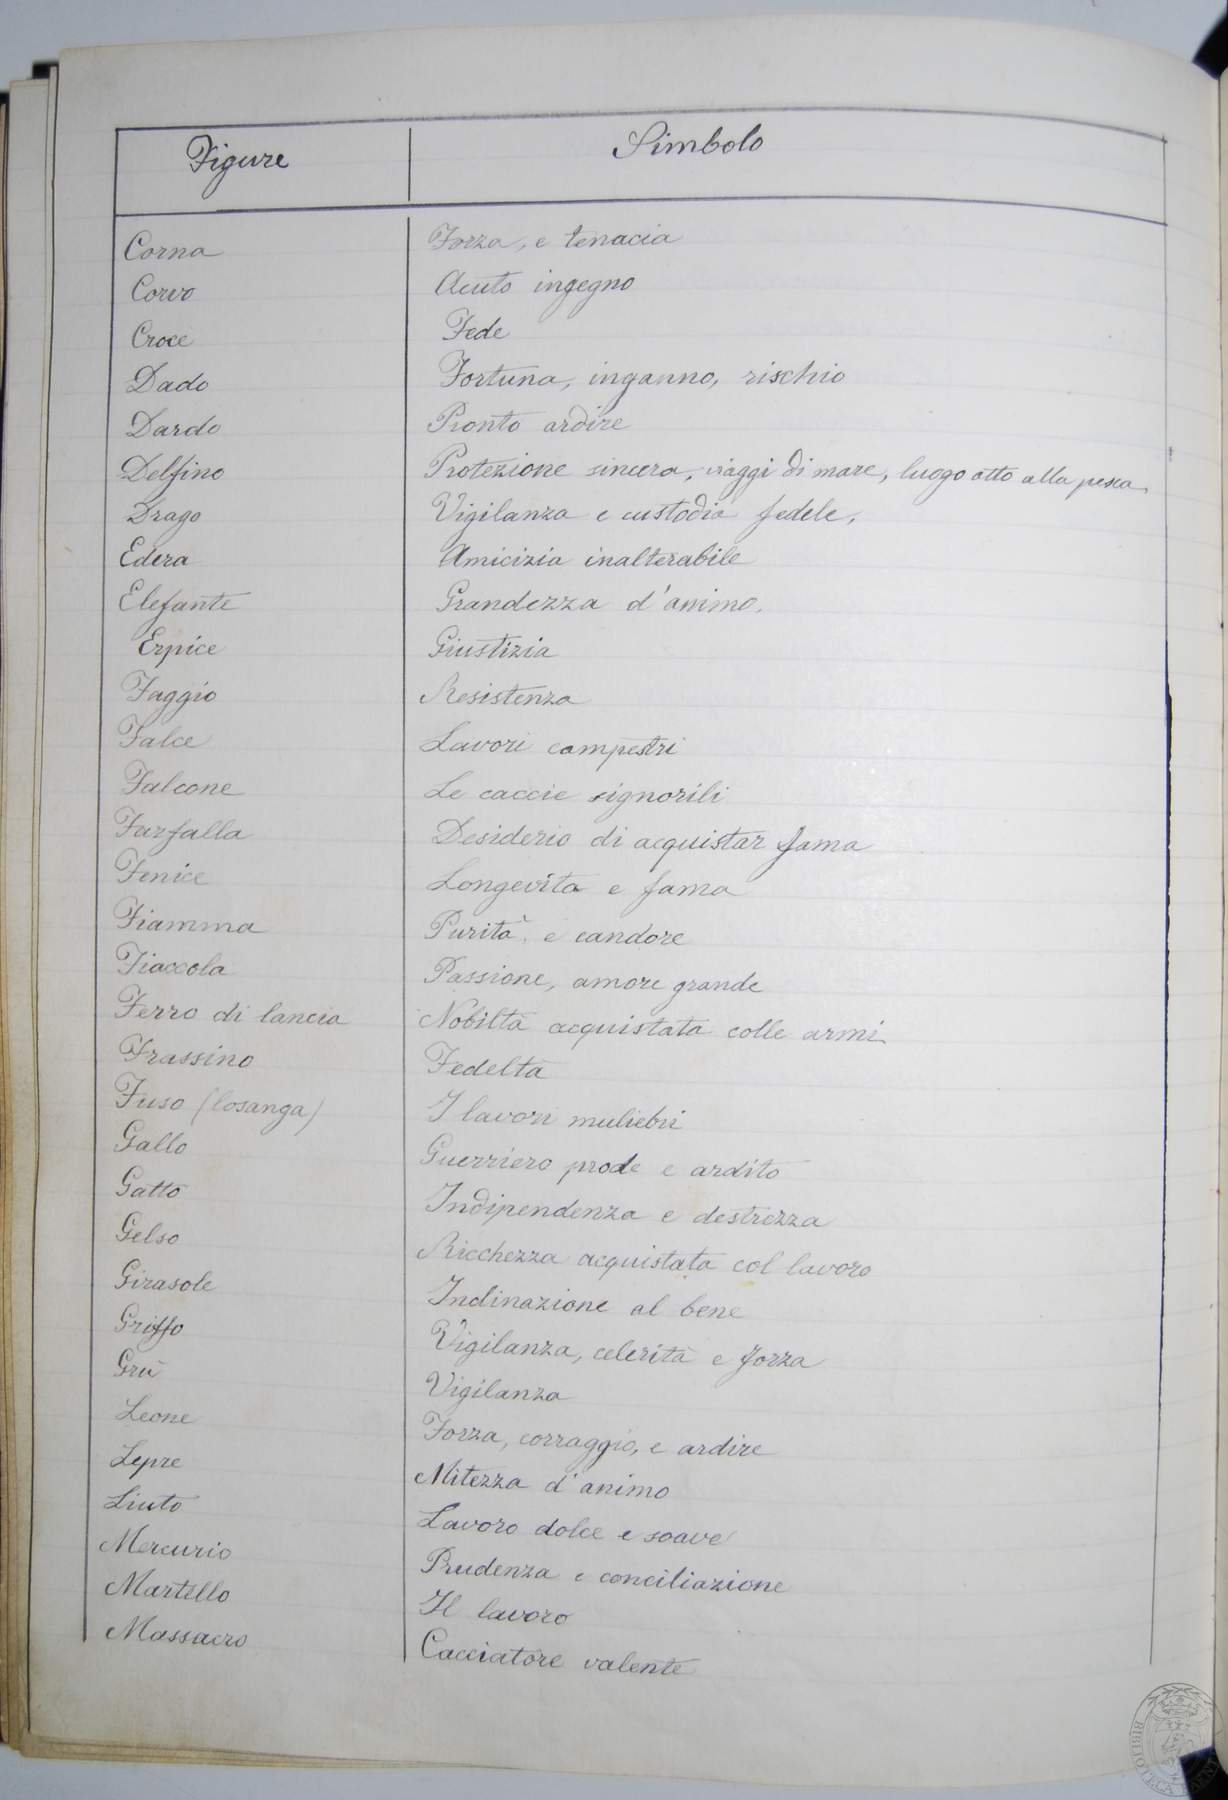 Figure Simbolo
Corna Forza, e tenacia
Corvo Acuto ingegno
Croce Fede
Dado Fortuna, inganno, rischio
Dardo Pronto ardire
Delfino Protezione sincera, viaggi di mare, luogo atto alla pesca
Drago Vigilanza e custodia fedele,
Edera Amicizia inalterabile
Elefante Grandezza d'animo.
Erpice Giustizia
Faggio Resistenza
Falce Lavori campestri
Falcone Le caccie signorili
Farfalla Desiderio di acquistar fama
Fenice Longevita e fama
Fiamma Purità, e candore
Fiaccola Passione, amore grande
Ferro di lancia Nobiltà acquistata colle armi
Frassino Fedeltà
Fuso (losanga) I lavori muliebri
Gallo Guerriero prode e ardito
Gatto Indipendenza e destrezza
Gelso Ricchezza acquistata col lavoro
Girasole Inclinazione al bene
Griffo Vigilanza, celerità e forza
Grù Vigilanza
Leone Forza, corraggio, e ardire
Lepre Mitezza d'animo
Liuto Lavoro dolce e soave
Mercurio Prudenza e conciliazione
Martello Il lavoro
Massacro Cacciatore valente
BIBLIOTECA